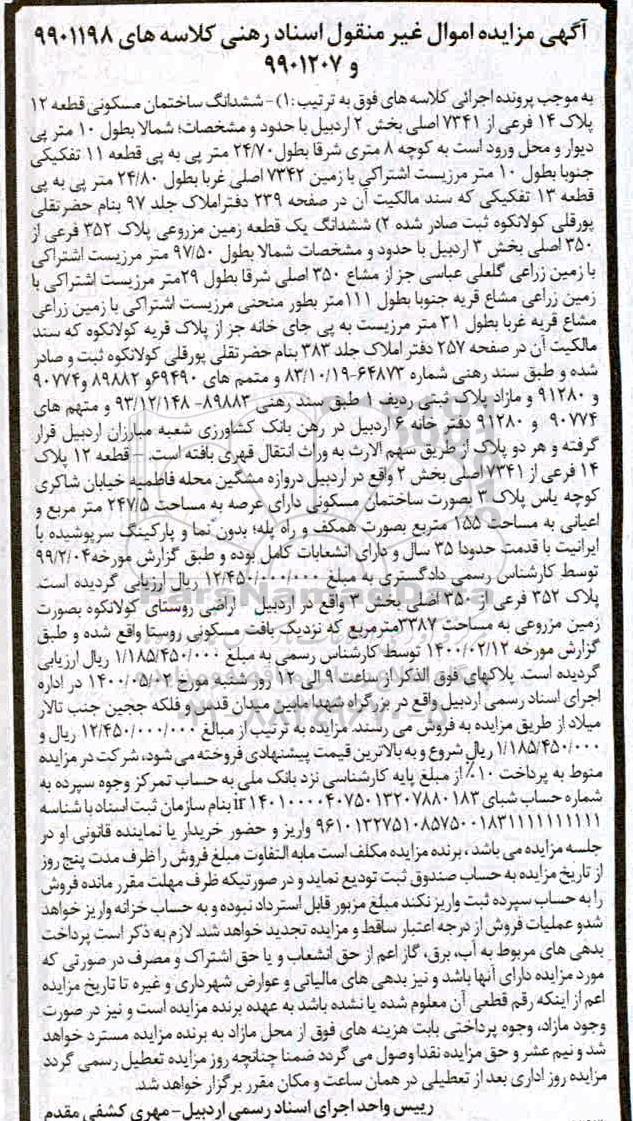 آگهی مزایده اموال غیر منقول اسناد رهنی کلاسه های ۹۹۰۱۱۹۸
و ۹۹۰۱۲۰۷
به موجب پرونده اجرائی کلاسه های فوق به ترتیب:۱)- ششدانگ ساختمان مسکونی قطعه ۱۲
پلاک ۱۴ فرعی از ۷۳۴۱ اصلی بخش ۲ اردبیل با حدود و مشخصات؛ شمالا بطول ۱۰ متر پی
دیوار و محل ورود است به کوچه ۸ متری شرقا بطول۲۴/۷۰ متر پی به پی قطعه ۱۱ تفکیکی
جنوبا بطول ۱۰ متر مرزیست اشتراکی با زمین ۷۳۴۲ اصلی غربا بطول ۲۴/۸۰ متر پی به پی
قطعه ۱۳ تفکیکی که سند مالکیت آن در صفحه ۲۳۹ دفتراملاک جلد ۹۷ بنام حضرتقلی
پورقلی کولانکوه ثبت صادر شده ۲) ششدانگ یک قطعه زمین مزروعی پلاک ۳۵۲ فرعی از
۳۵۰ اصلی بخش ۳ اردبیل با حدود و مشخصات شمالا بطول ۹۷/۵۰ متر مرزیست اشتراکی
با زمین زراعی گلعلی عباسی جز از مشاع ۳۵۰ اصلی شرقا بطول ۲۹متر مرزیست اشتراکی با
زمین زراعی مشاع قریه جنوبا بطول ۱۱۱متر بطور منحنی مرزیست اشتراکی با زمین زراعی
مشاع قریه غربا بطول ۳۱ متر مرزیست به پی جای خانه جز از پلاک قریه کولانکوه که سند
مالکیت آن در صفحه ۲۵۷ دفتر املاک جلد ۳۸۳ بنام حضرتقلی پورقلی کولانکوه ثبت و صادر
شده و طبق سند رهنی شماره ۶۴۸۷۳-۸۳/۱۰/۱۹ و متمم های ۶۹۴۹۰و ۸۹۸۸۲ و۹۰۷۷۴
و ۹۱۲۸۰ و مازاد پلاک ثبتی ردیف ۱ طبق سند رهنی ۸۹۸۸۳- ۹۳/۱۲/۱۴۸ و متهم های
۹۰۷۷۴ و ۹۱۲۸۰ دفتر خانه ۶ اردبیل در رهن بانک کشاورزی شعبه مبارزان اردبیل قرار
گرفته و هر دو پلاک از طریق سهم الارث به وراث انتقال قهری یافته است. - قطعه ۱۲ پلاک
۱۴ فرعی از ۷۳۴۱اصلی بخش ۲ واقع در اردبیل دروازه مشگین محله فاطمیه خیابان شاکری
کوچه یاس پلاک ۳ بصورت ساختمان مسکونی دارای عرصه به مساحت ۲۴۷/۵ متر مربع و
اعیانی به مساحت ۱۵۵ متربع بصورت همکف و راه پله؛ بدون نما و پارکینگ سرپوشیده با
ایرانیت با قدمت حدودا ۳۵ سال و دارای انشعابات کامل بوده و طبق گزارش مورخه۹۹/۲/۰۴
توسط کارشناس رسمی دادگستری به مبلغ ۱۲/۴۵۰/۰۰۰/۰۰۰ ریال ارزیابی گردیده است.
پلاک ۳۵۲ فرعی از ۳۵۰ اصلی بخش ۳ واقع در اردبیل اراضی روستای کولانکوه بصورت
زمین مزروعی به مساحت ۳۳۸۷مترمربع که نزدیک بافت مسکونی روستا واقع شده و طبق
گزارش مورخه ۱۴۰۰/۰۲/۱۲ توسط کارشناس رسمی به مبلغ ۱/۱۸۵/۴۵۰/۰۰۰ ریال ارزیابی
گردیده است. پلاکهای فوق الذکر از ساعت ۹ الی ۱۲ روز شنبه مورخ ۱۴۰۰/۰۵/۰۲ در اداره
اجرای اسناد رسمی اردبیل واقع در بزرگراه شهدا مابین میدان قدس و فلکه ججین جنب تالار
میلاد از طریق مزایده به فروش می رسند. مزایده به ترتیب از مبالغ ۱۲/۴۵۰/۰۰۰/۰۰۰ ریال و
۱/۱۸۵/۴۵۰/۰۰۰ ریال شروع و به بالاترین قیمت پیشنهادی فروخته می شود، شرکت در مزایده
منوط به پرداخت ۱۰٪ از مبلغ پایه کارشناسی نزد بانک ملی به حساب تمرکز وجوه سپرده به
شماره حساب شبای ir ۱۴۰۱۰۰۰۰۴۰۷۵۰۱۳۲۰۷۸۸۰۱۸۳ بنام سازمان ثبت اسناد با شناسه
۹۶۱۰۱۳۲۷۵۱۰۸۵۷۵۰۰۱۸۳۱۱۱۱۱۱۱۱۱۱ واریز و حضور خریدار یا نماینده قانونی او در
جلسه مزایده می باشد ، برنده مزایده مکلف است مابه التفاوت مبلغ فروش را ظرف مدت پنج روز
از تاریخ مزایده به حساب صندوق ثبت تودیع نماید و در صورتیکه ظرف مهلت مقرر مانده فروش
را به حساب سپرده ثبت واریز نکند مبلغ مزبور قابل استرداد نبوده و به حساب خزانه واریز خواهد
شدو عملیات فروش از درجه اعتبار ساقط و مزایده تجدید خواهد شد. لازم به ذکر است پرداخت
بدهی های مربوط به آب، برق، گاز اعم از حق انشعاب و یا حق اشتراک و مصرف در صورتی که
مورد مزایده دارای آنها باشد و نیز بدهی های مالیاتی و عوارض شهرداری و غیره تا تاریخ مزایده
اعم از اینکه رقم قطعی آن معلوم شده یا نشده باشد به عهده برنده مزایده است و نیز در صورت
وجود مازاد، وجوه پرداختی بابت هزینه های فوق از محل مازاد به برنده مزایده مسترد خواهد
شد و نیم عشر و حق مزایده نقدا وصول می گردد ضمنا چنانچه روز مزایده تعطیل رسمی گردد
مزایده روز اداری بعد از تعطیلی در همان ساعت و مکان مقرر برگزار خواهد شد.
رییس واحد اجرای اسناد رسمی اردبیل- مهری کشفی مقدم